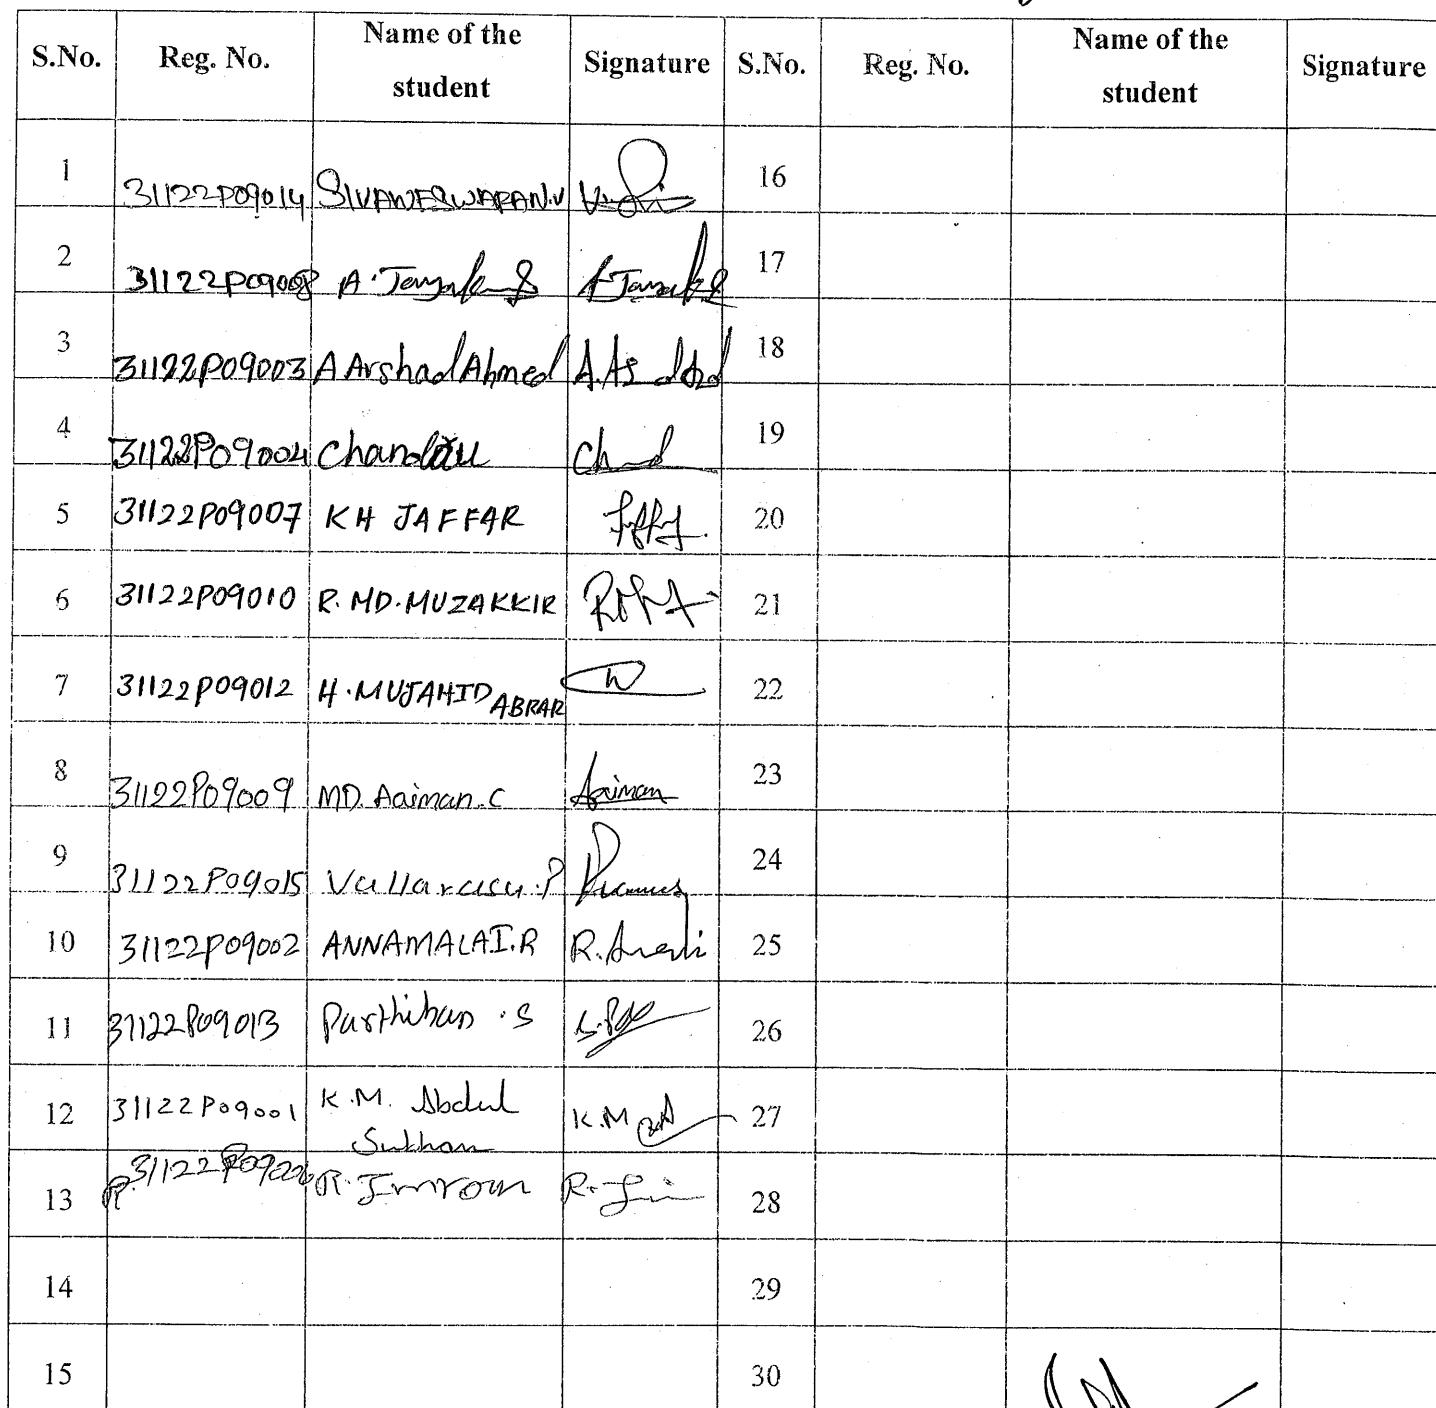 S.No. Reg. No. Name of the student Signature S.No. Reg. No. Name of the student Signature
1 31122P09014 SIVANESWARAN.V 16
2 31122P09008 17
3 31122P09003 A Arshad Ahmed 18
4 31122P09004 19
5 31122P09007 KH JAFFAR 20
6 31122P09010 R. MD. MUZAKKIR 21
7 31122P09012 H. MUJAHID ABRAR 22
8 31122P09009 MD. Aaiman. C Aaiman 23
9 31122P09015 Vallarasu. P 24
10 31122P09002 ANNAMALAI.R 25
11 31122P09013 Parthiban . S 26
12 31122P09001 K.M. Abdul K.M 27
13 R. Imran 28
14 29
15 30